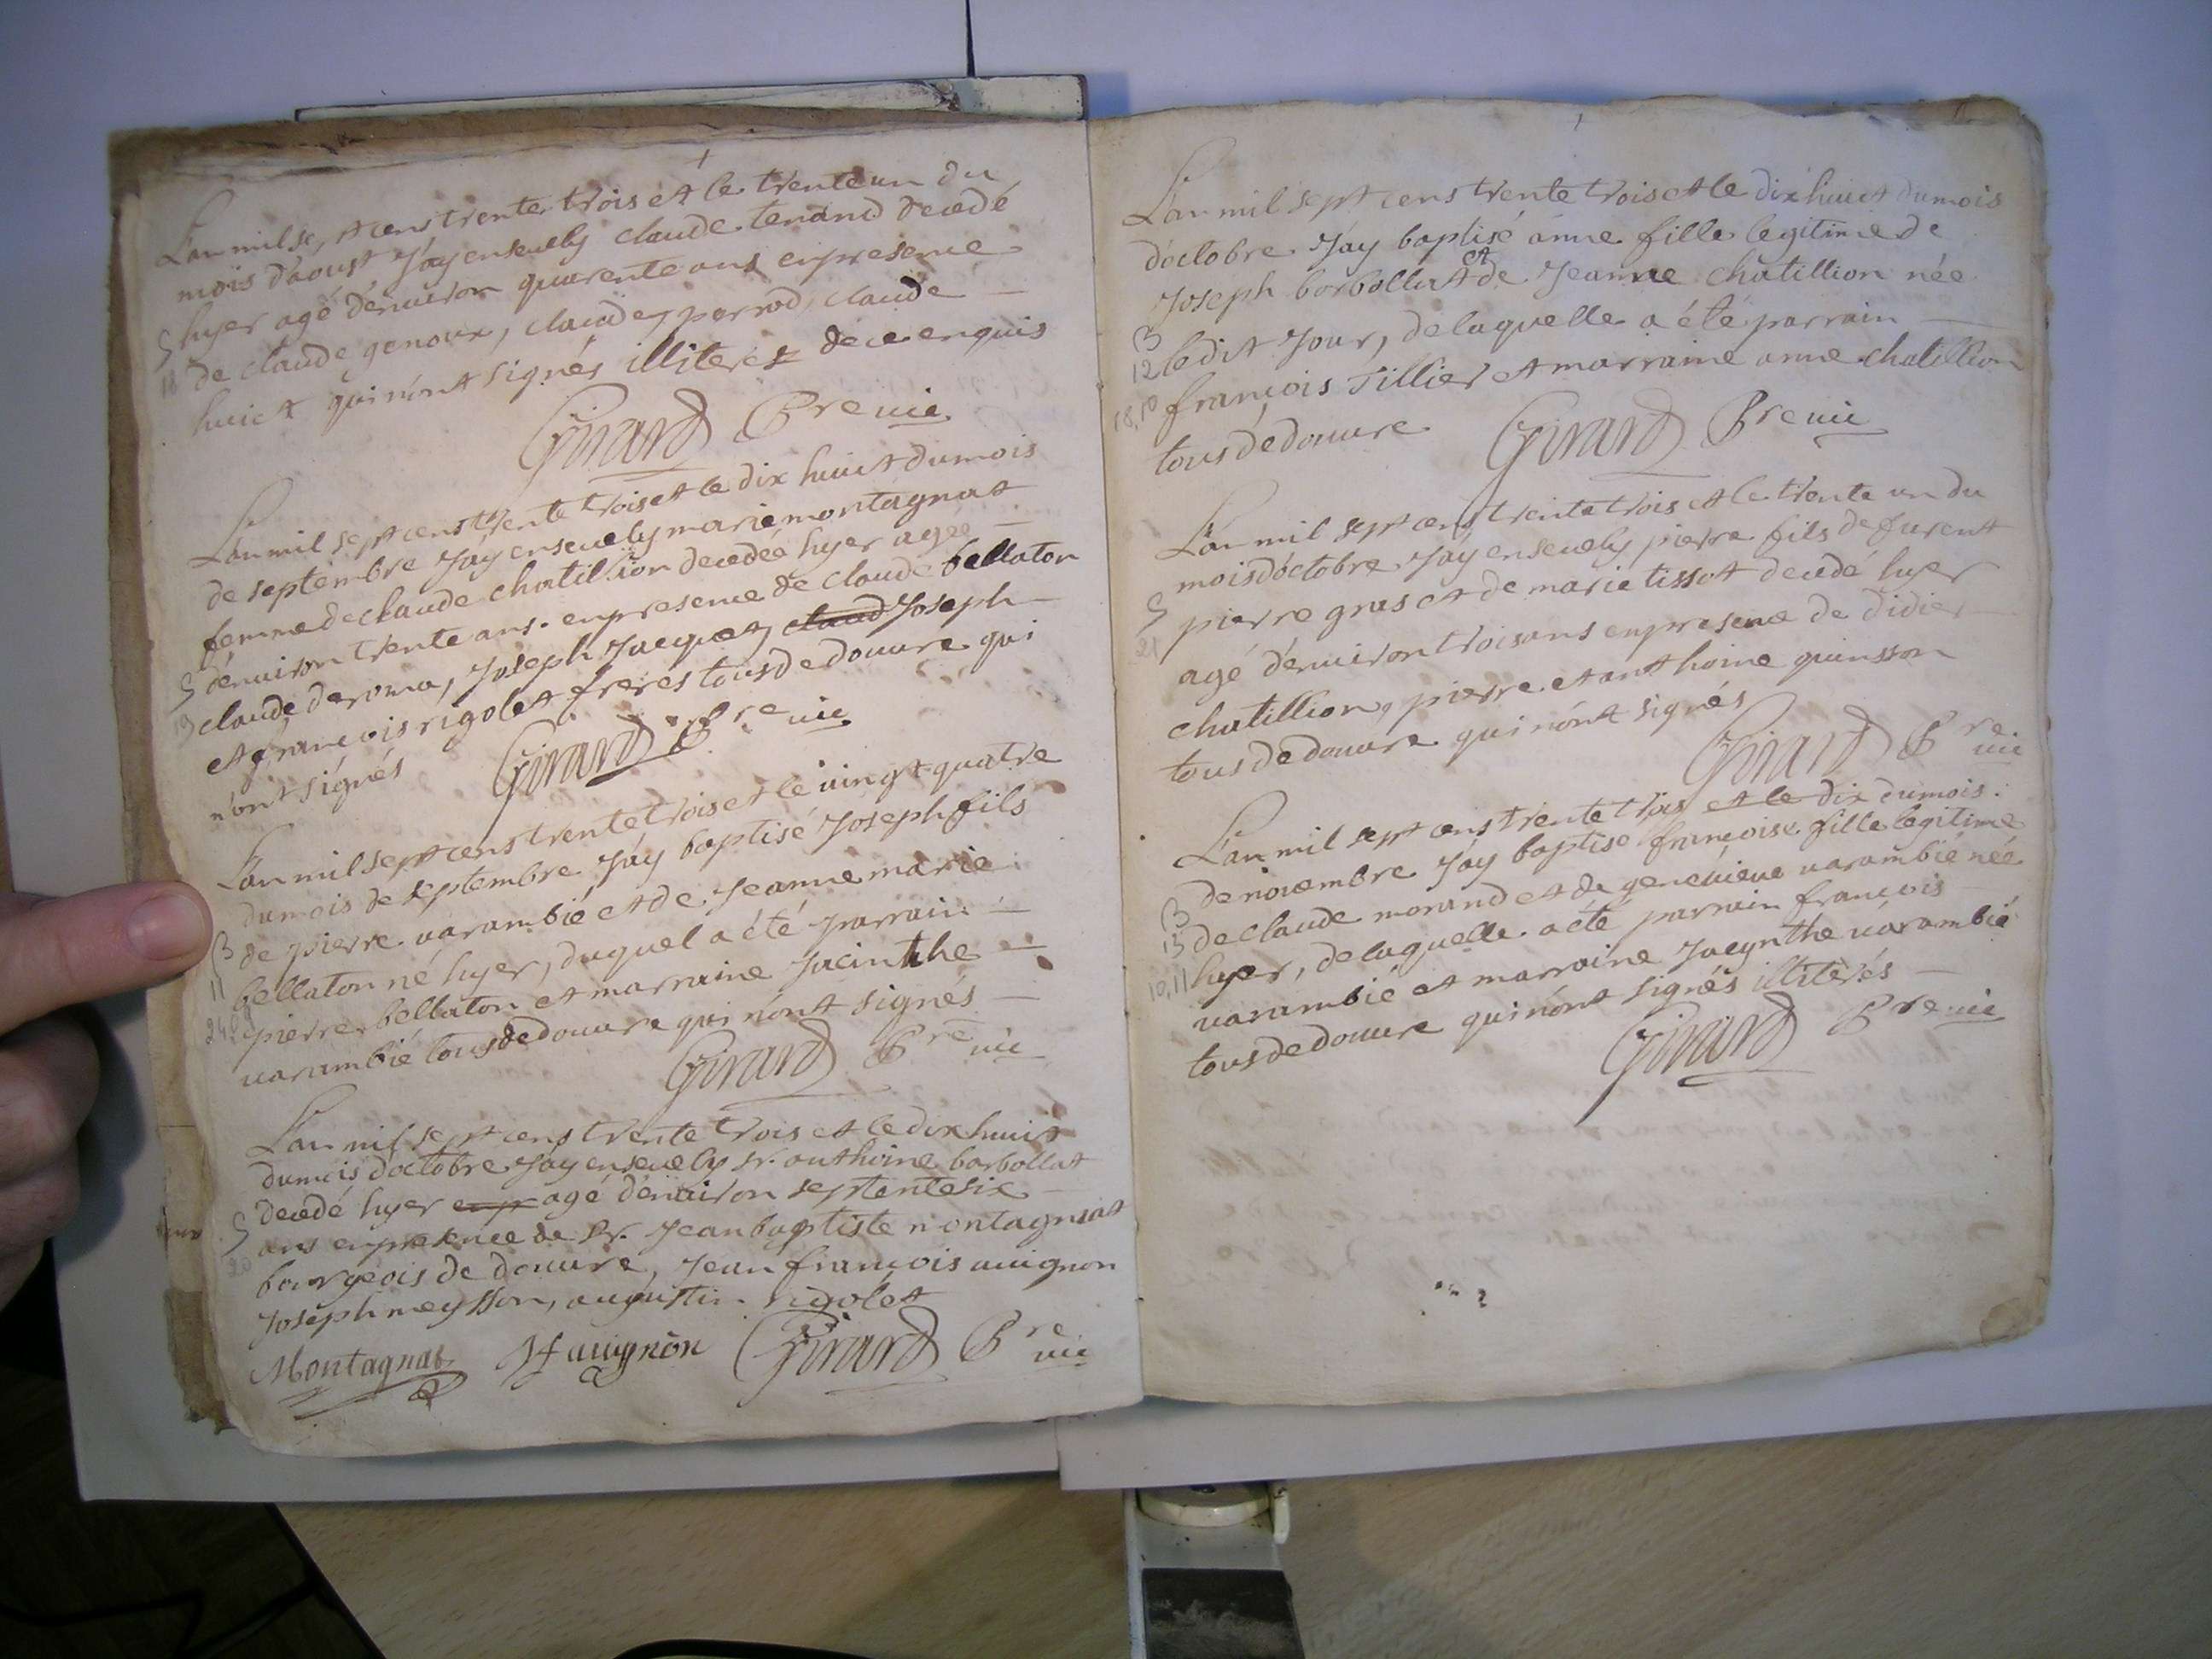 L'an mil sept cens trente trois et le trente un du
mois d'aoust j'ay ensevely claude tenand decedé
S hyer agé d'environ quarente ans en presence
18 de claude genoux, claude perrod, claude —
huict qui n'ont signés illiterés de ce enquis
Girard Pre vic
L'an mil sept cens trente trois et le dix huict du mois
de septembre j'ay ensevely marie montagnat
femme de claude chatillion decedée hyer agée —
S d'environ trente ans. en presence de claude bellaton
19 claude deroma, Joseph Jacquet, claud Joseph —
et françois rigolet freres tous de douvre qui
n'ont signés Girard Pre vic
L'an mil sept cens trente trois et le vingt quatre
du mois de septembre j'ay baptisé Joseph fils
B de pierre varambié et de Jeanne marie
11 bellaton né hyer, duquel a été parrain —
24 pierre bellaton et marraine Jacinthe —
varambié tous de douvre qui n'ont signés —
Girard Pre vic
L'an mil sept cens trente trois et le dix huit
du mois d'octobre j'ay ensevely sr. anthoine barbollat
decedé hyer enp agé d'environ septente six —
S ans en presence de Sr. Jean baptiste montagnat
20 bourgeois de douvre, Jean françois auvignon
Joseph neysson, augustin rigolet
Montagnat Jf auvignon Girard Pre vic
L'an mil sept cens trente trois et le dix huict du mois
d'octobre j'ay baptisé anne fille legitime de
et
Joseph barbollat de Jeanne chatillion née
B ledit jour, de laquelle a été parrain —
12 françois Tillier et marraine anne chatillion
18,10 tous de douvre Girard Pre vic
L'an mil sept cens trente trois et le trente un du
mois d'octobre j'ay ensevely pierre fils de furent
S pierre gras et de marie tissot decedé hyer
21 agé d'environ trois ans en presence de didier —
chatillion, pierre et anthoine quinsson
tous de douvre qui n'ont signés
Girard Pre vic
L'an mil sept cens trente trois et le dix du mois
de novembre j'ay baptisé françoise fille legitime
B de claude morand et de genevieve varambié née
13 hyer, de laquelle a été parrain françois
10,11 varambié et marraine Jacynthe varambié
tous de douvre qui n'ont signés illiterés —
Girard Pre vic